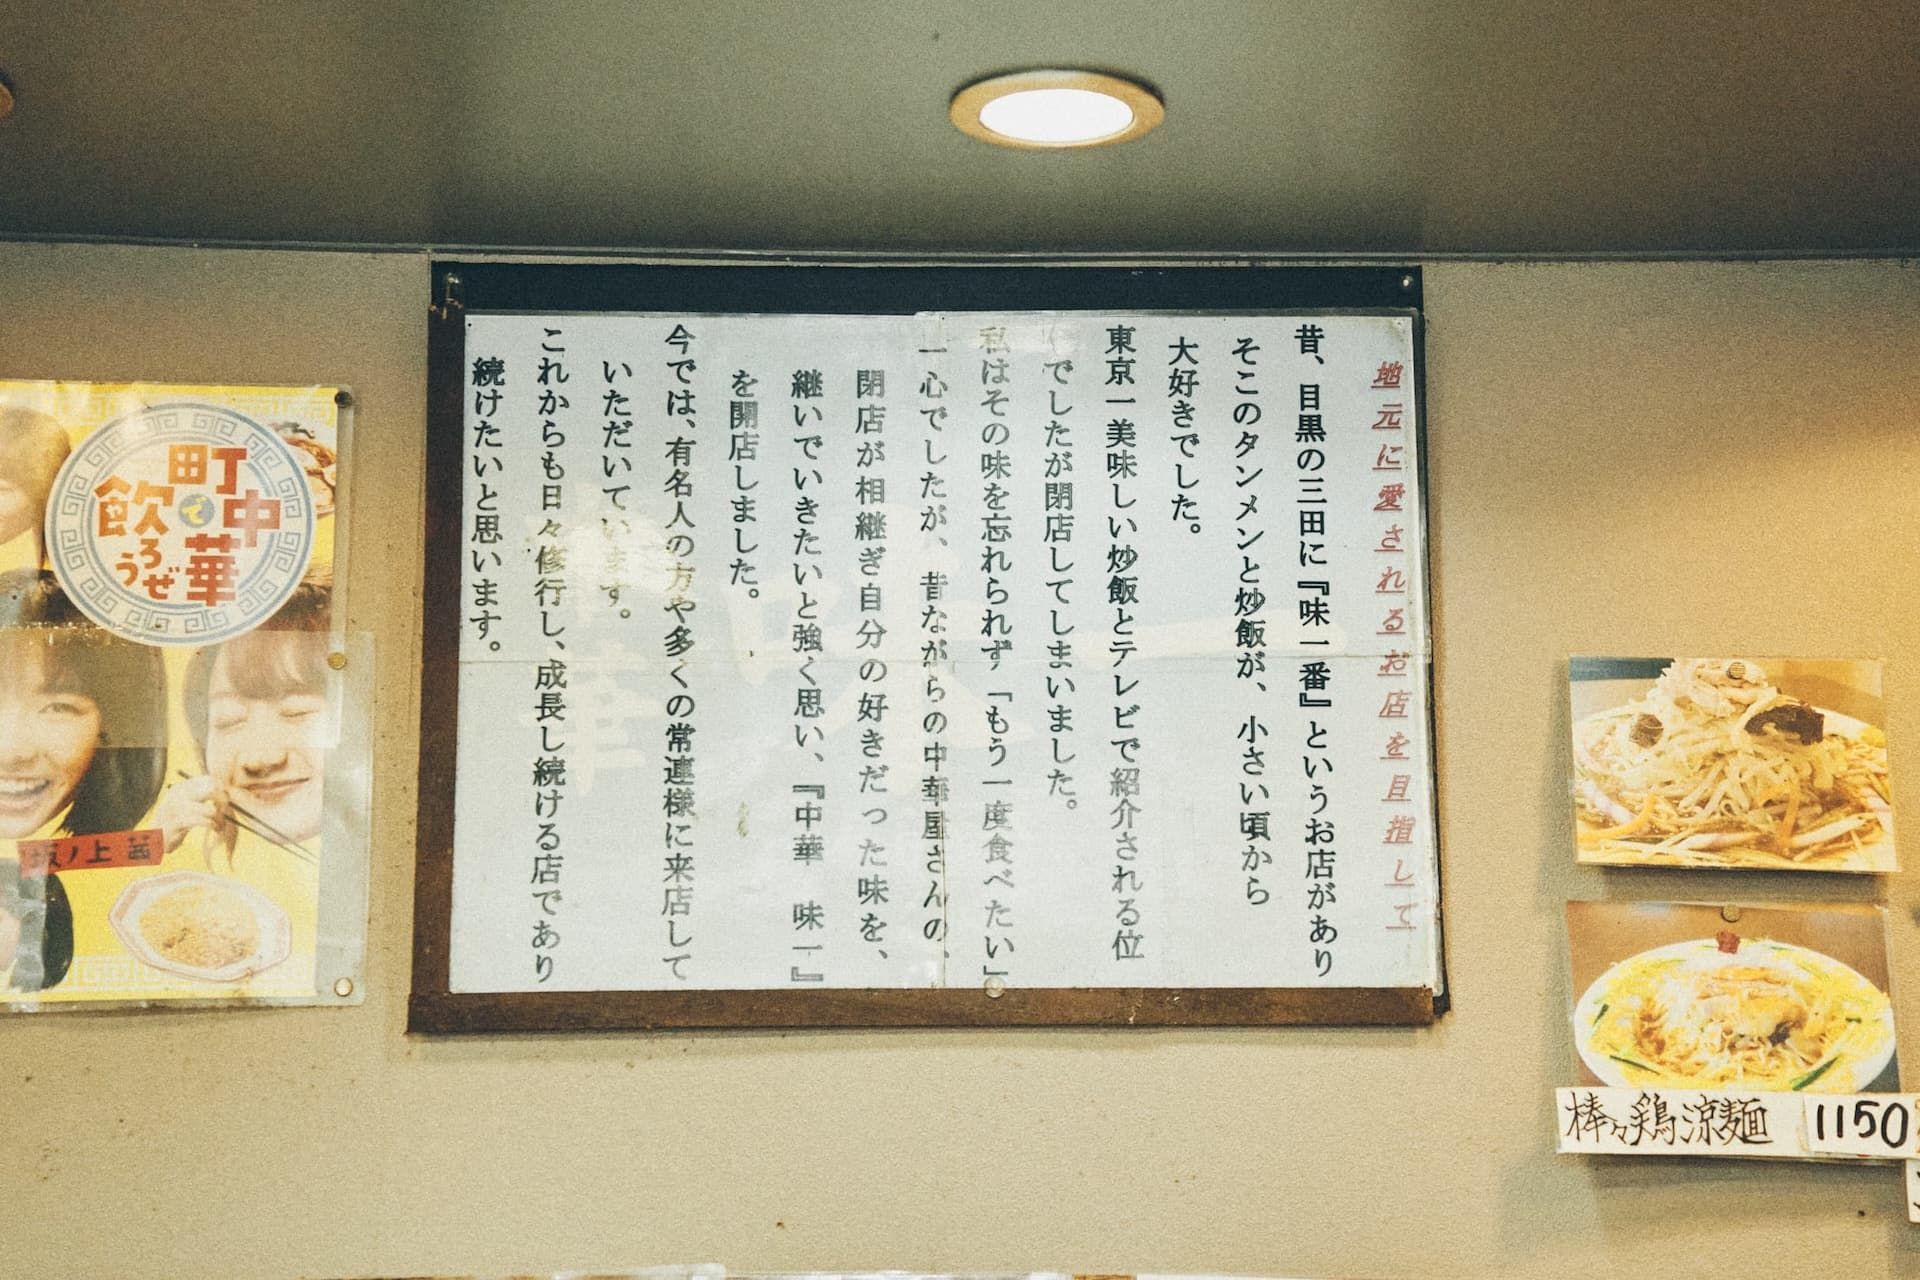 地元に愛されるお店を目指して
昔、目黒の三田に『味一番』というお店があり
そこのタンメンと炒飯が、小さい頃から
大好きでした。
東京一美味しい炒飯とテレビで紹介される位
でしたが閉店してしまいました。
私はその味を忘れられず「もう一度食べたい」
一心でしたが、昔ながらの中華屋さんの、
閉店が相継ぎ自分の好きだった味を、
継いでいきたいと強く思い、『中華　味一』
を開店しました。
今では、有名人の方や多くの常連様に来店して
いただいています。
これからも日々修行し、成長し続ける店であり
続けたいと思います。
町中華
で
飲ろうぜ
坂ノ上茜
棒々鶏涼麺
1150